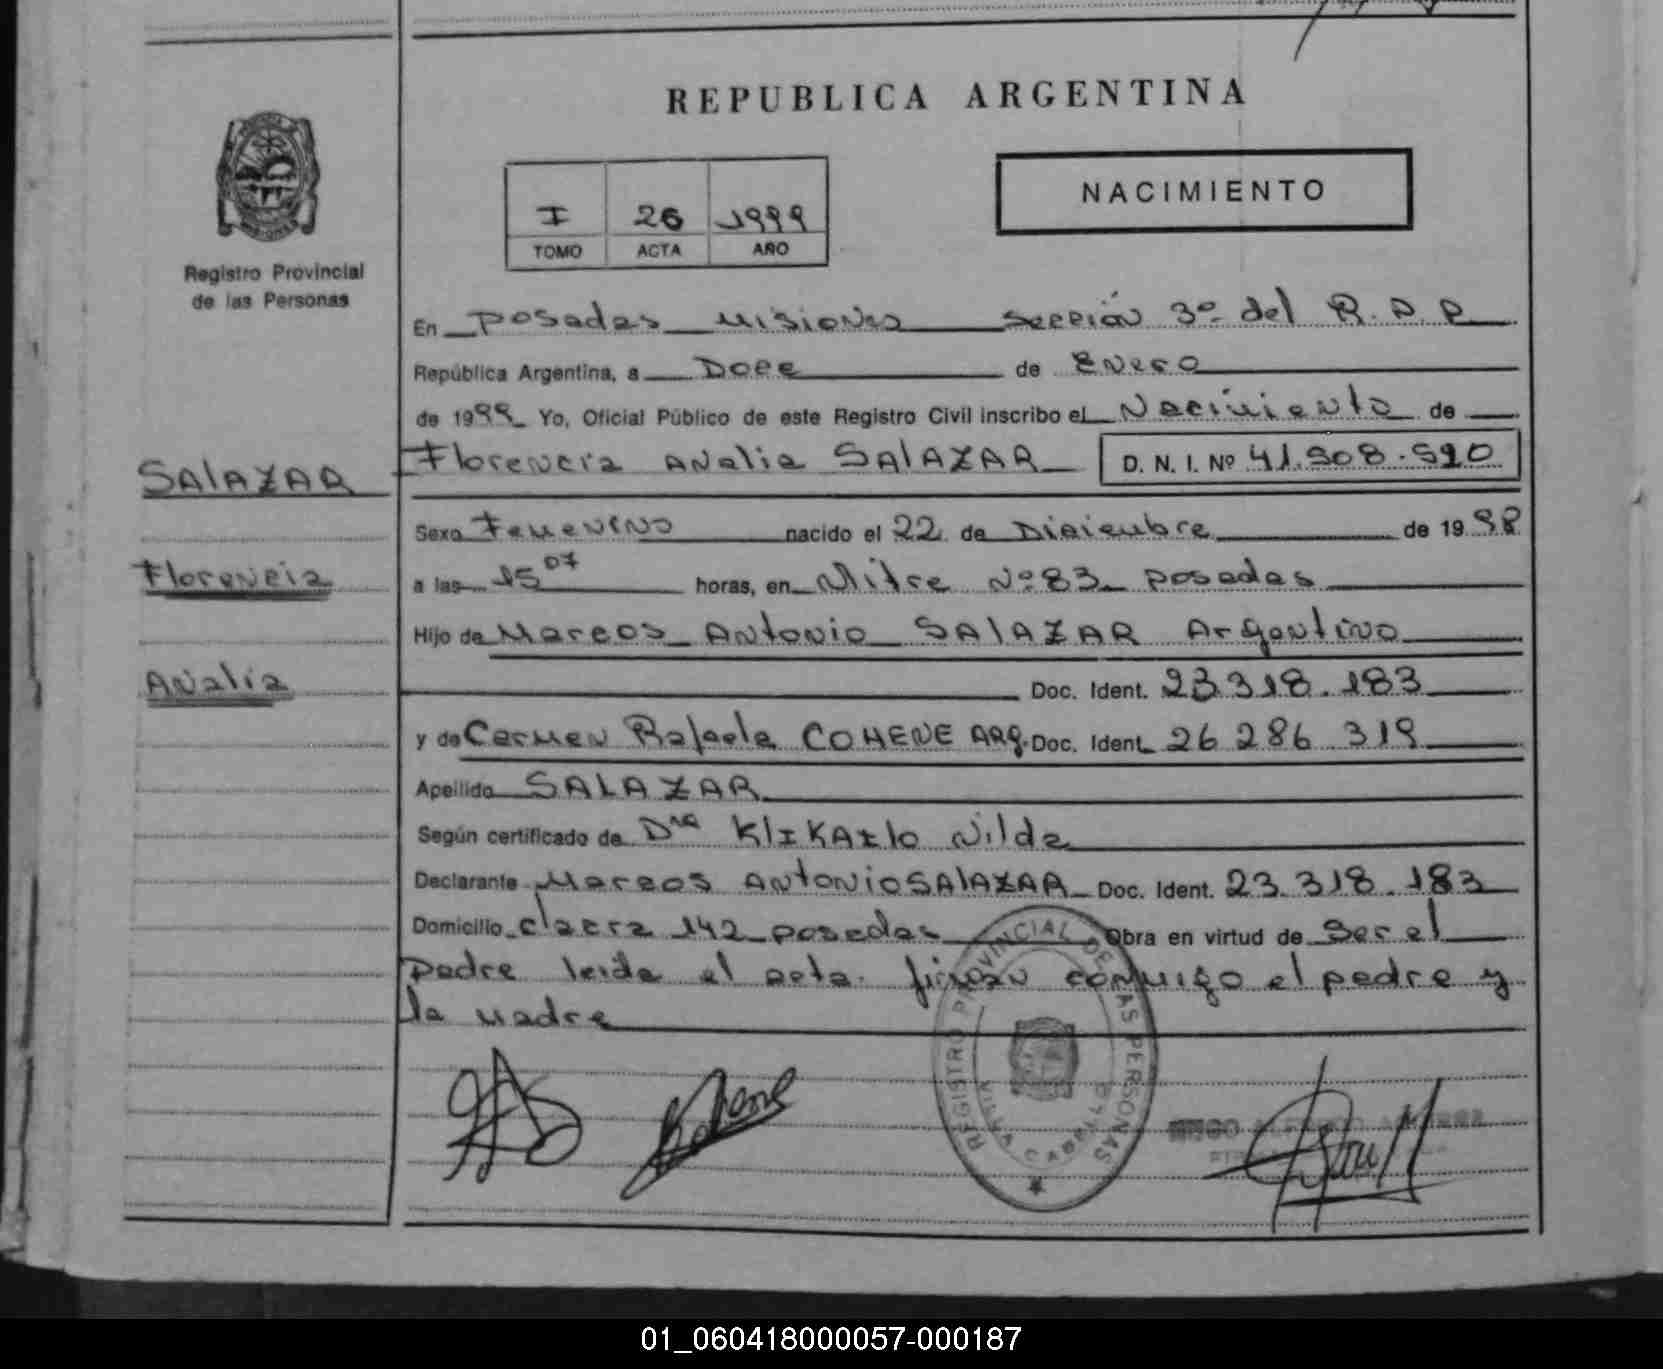 REPUBLICA ARGENTINA
NACIMIENTO
I 26 1999
TOMO ACTA AÑO
Registro Provincial
de las Personas
En Posadas Misiones Sección 3º del R.P.P
República Argentina, a Doce de Enero
de 1999 Yo, Oficial Público de este Registro Civil inscribo el Nacimiento de
Florencia Analia SALAZAR D. N. I. Nº 41.908.590
SALAZAR
Sexo Femenino nacido el 22 de Diciembre de 1998
Florencia
a las 15 07 horas, en Mitre Nº 83 Posadas
Hijo de Marcos Antonio SALAZAR Argentino
Analia
Doc. Ident. 23.318.183
y de Carmen Rafaela COHENE ARg. Doc. Ident. 26 286 319
Apellido SALAZAR
Según certificado de Dra KlIKAIlo Nilda
Declarante Marcos Antonio SALAZAR Doc. Ident. 23.318.183
Domicilio Clacra 142 Posadas Obra en virtud de Ser el
Padre leida el acta firman conmigo el padre y
la madre
REGISTRO PROVINCIAL DE LAS PERSONAS
VILLA CABELLO
01_060418000057-000187